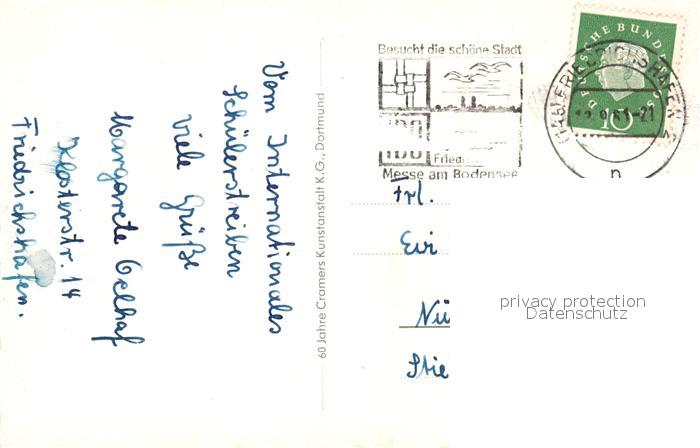 Vom Internationales
Schülerstreiben
viele Grüße
Margarete Oelhaf
Klosterstr. 14
Friedrichshafen.
60 Jahre Cramers Kunstanstalt K.G., Dortmund
Besucht die schöne Stadt
IBO
Friedri
Messe am Bodensee
DEUTSCHE BUNDESPOST
10
FRIEDRICHSHAFEN
.9.61-21
n
Frl.
Evi
Nü
Stie
privacy protection
Datenschutz